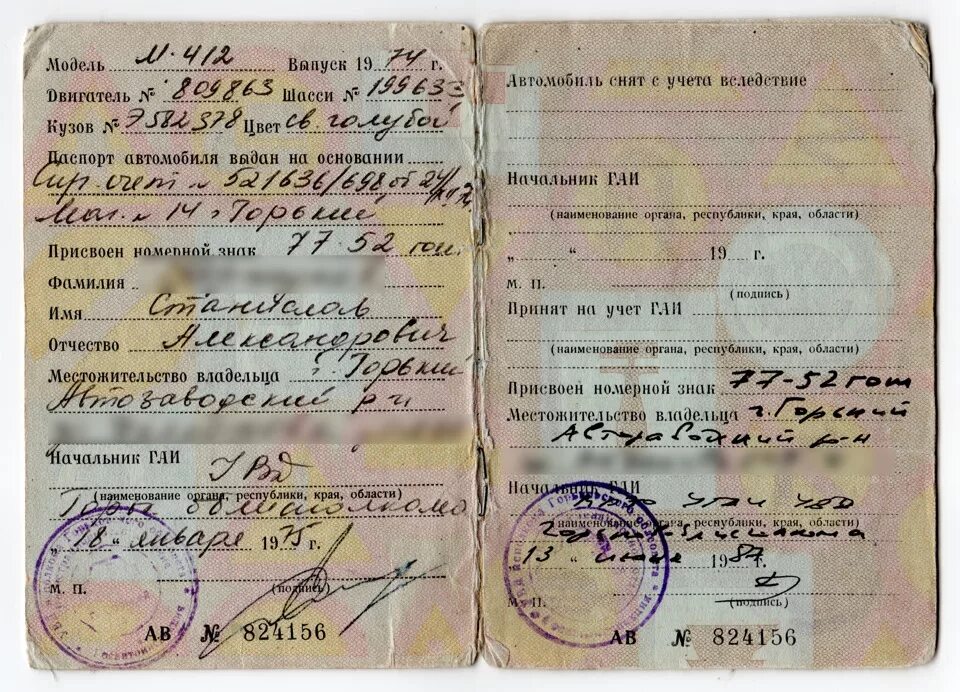 Модель М-412 Выпуск 1974 г.
Двигатель № 809863 Шасси № 199633
Кузов № Э582378 Цвет св голубой
Паспорт автомобиля выдан на основании
Спр. счет № 521636/698 от 24/
Маг. № 14 г Горький
Присвоен номерной знак 77-52 гоп.
Фамилия
Имя Станислав
Отчество Александрович
Местожительство владельца г. Горький
Автозаводский р-н
Начальник ГАИ УВД
(наименование органа, республики, края, области)
Горьк. облисполкома
„18“ января 1975 г.
М. П. (подпись)
АВ № 824156
Автомобиль снят с учета вследствие
Начальник ГАИ
(наименование органа, республики, края, области)
„ “ 19 г.
М. П. (подпись)
Принят на учет ГАИ
(наименование органа, республики, края, области)
Присвоен номерной знак 77-52 гоп
Местожительство владельца г. Горький
Автозаводский р-н
Начальник ГАИ
(наименование органа, республики, края, области)
13 “ июня 1987 г.
М. П. (подпись)
АВ № 824156